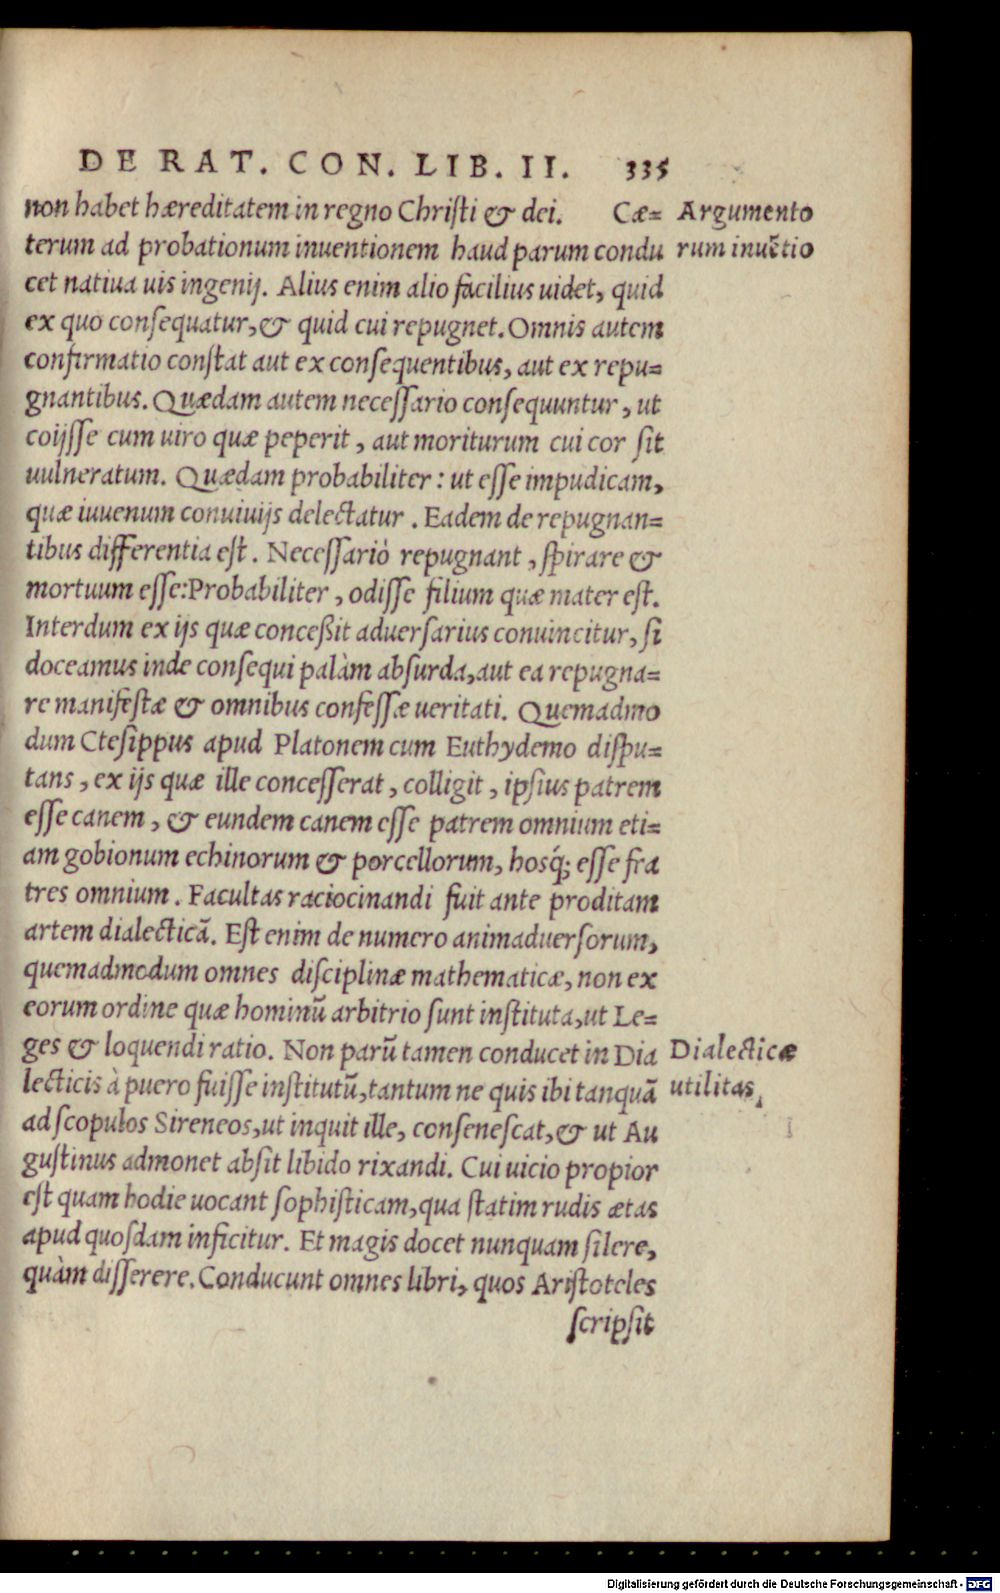 DE RAT. CON. LIB. II. 335
non habet hæreditatem in regno Christi & dei. Cæ=
Argumento
terum ad probationum inuentionem haud parum condu
rum inuẽtio
cet natiua uis ingenij. Alius enim alio facilius uidet, quid
ex quo consequatur, & quid cui repugnet. Omnis autem
confirmatio constat aut ex consequentibus, aut ex repu=
gnantibus. Quædam autem necessario consequuntur, ut
coijsse cum uiro quæ peperit, aut moriturum cui cor sit
uulneratum. Quædam probabiliter: ut esse impudicam,
quæ iuuenum conuiuijs delectatur. Eadem de repugnan=
tibus differentia est. Necessariò repugnant, spirare &
mortuum esse: Probabiliter, odisse filium quæ mater est.
Interdum ex ijs quæ conceßit aduersarius conuincitur, si
doceamus inde consequi palàm absurda, aut ea repugna=
re manifestæ & omnibus confessæ ueritati. Quemadmo
dum Ctesippus apud Platonem cum Euthydemo dispu=
tans, ex ijs quæ ille concesserat, colligit, ipsius patrem
esse canem, & eundem canem esse patrem omnium eti=
am gobionum echinorum & porcellorum, hosq́; esse fra
tres omnium. Facultas raciocinandi fuit ante proditam
artem dialecticã. Est enim de numero animaduersorum,
quemadmodum omnes disciplinæ mathematicæ, non ex
eorum ordine quæ hominũ arbitrio sunt instituta, ut Le=
ges & loquendi ratio. Non parũ tamen conducet in Dia
Dialecticæ
lecticis à puero fuisse institutũ, tantum ne quis ibi tanquã
utilitas,
ad scopulos Sireneos, ut inquit ille, consenescat, & ut Au
gustinus admonet absit libido rixandi. Cui uicio propior
est quam hodie uocant sophisticam, qua statim rudis ætas
apud quosdam inficitur. Et magis docet nunquam silere,
quàm disserere. Conducunt omnes libri, quos Aristoteles
scripsit
Digitalisierung gefördert durch die Deutsche Forschungsgemeinschaft - DFG